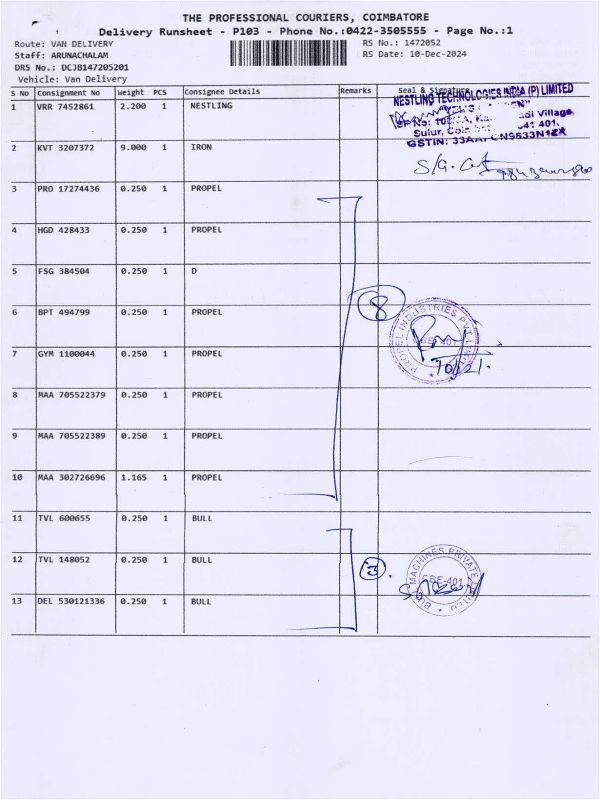 THE PROFESSIONAL COURIERS, COIMBATORE
Delivery Runsheet - P103 - Phone No.:0422-3505555 - Page No.:1
Route: VAN DELIVERY RS No.: 1472052
Staff: ARUNACHALAM RS Date: 10-Dec-2024
DRS No.: DCJB147205201
Vehicle: Van Delivery
S No Consignment No Weight PCS Consignee Details Remarks Seal & Signature
1 VRR 7452861 2.200 1 NESTLING
NESTLING TECHNOLOGIES INDIA (P) LIMITED
Village
Sulur, 641 401.
GSTIN:
2 KVT 3207372 9.000 1 IRON
3 PRO 17274436 0.250 1 PROPEL
4 HGD 428433 0.250 1 PROPEL
5 FSG 384504 0.250 1 D
8
6 BPT 494799 0.250 1 PROPEL
PROPEL INDUSTRIES PVT LIMITED
7 GYM 1100044 0.250 1 PROPEL
8 MAA 705522379 0.250 1 PROPEL
9 MAA 705522389 0.250 1 PROPEL
10 MAA 302726696 1.165 1 PROPEL
11 TVL 600655 0.250 1 BULL
12 TVL 148052 0.250 1 BULL
3
BULL MACHINES PRIVATE LIMITED
CBE-401
13 DEL 530121336 0.250 1 BULL